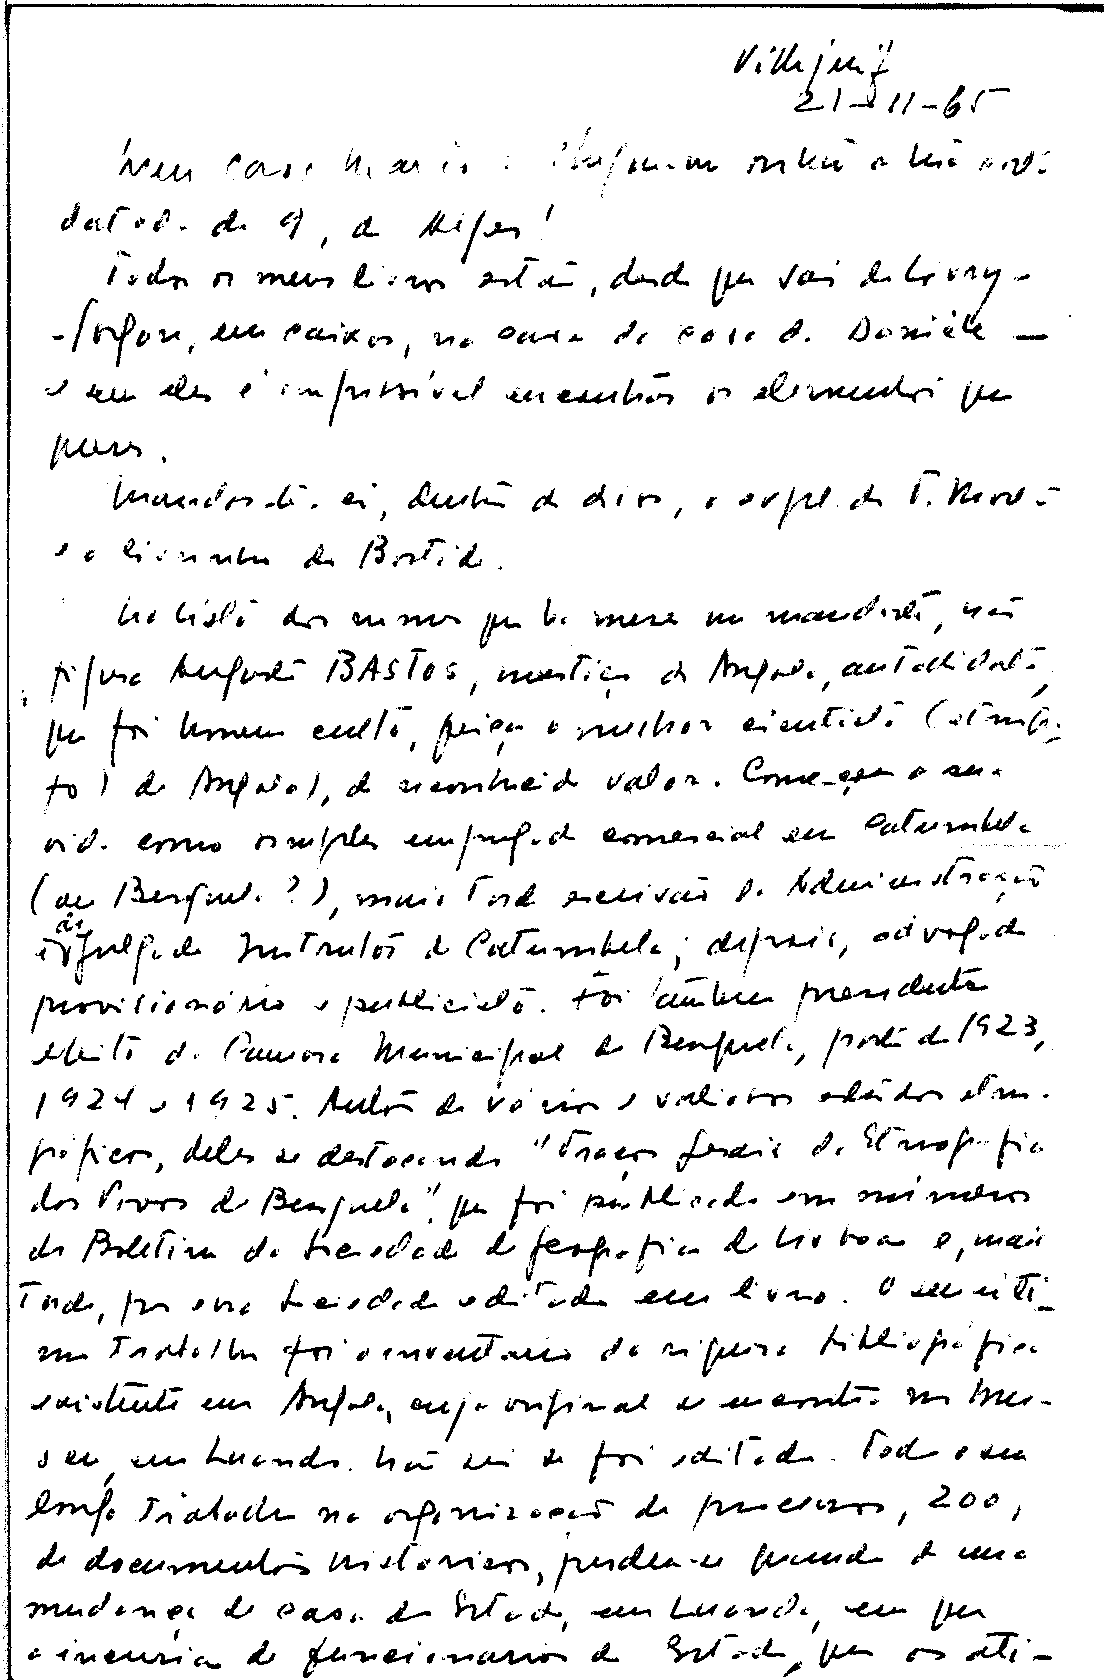 Villejuif
21-11-65
Meu caro Mário: Chegou-me ontem a tua carta
datada de 9, de Alger!
Todos os meus livros estão, desde que saí de Savigny-
-s/orge, em caixas, na cave da casa da Danièle —
e sem eles é impossível encontrar os elementos que
queres.
Mandar-te-ei, dentro de dias, o expl. de T. Mordé
e o livrinho de Bastide.
Na lista dos nomes que me mandaste, não
figura Augusto BASTOS, mestiço de Angola, autodidata,
que foi homem culto, quiçá o melhor cientista (etnógra-
fo) de Angola), de reconhecido valor. Começou a sua
vida como simples empregado comercial em Catumbela
(ou Benguela?), mais tarde escrivão da Administração
e do Julgado Instrutor de Catumbela; depois, advogado
provisionário e publicista. Foi também presidente
eleito da Camara Municipal de Benguela, parte de 1923,
1924 e 1925. Autor de vários e valiosos estudos etno-
gráficos, deles se destacando "Traços Gerais da Etnografia
dos Povos de Benguela", que foi publicado em números
do Boletim da Sociedade de Geografia de Lisboa e, mais
tarde, por essa Sociedade editado em livro. O seu últi-
mo trabalho foi o inventario da riqueza bibliográfica
existente em Angola, cujo original se encontra no Mu-
seu, em Luanda. Não sei se foi editado. Todo o seu
longo trabalho na organização de processos, 200,
de documentos historicos, perdeu-se quando de uma
mudança de casa do Estado, em Luanda, em que
a incuria de funcionarios do Estado, que os ati-